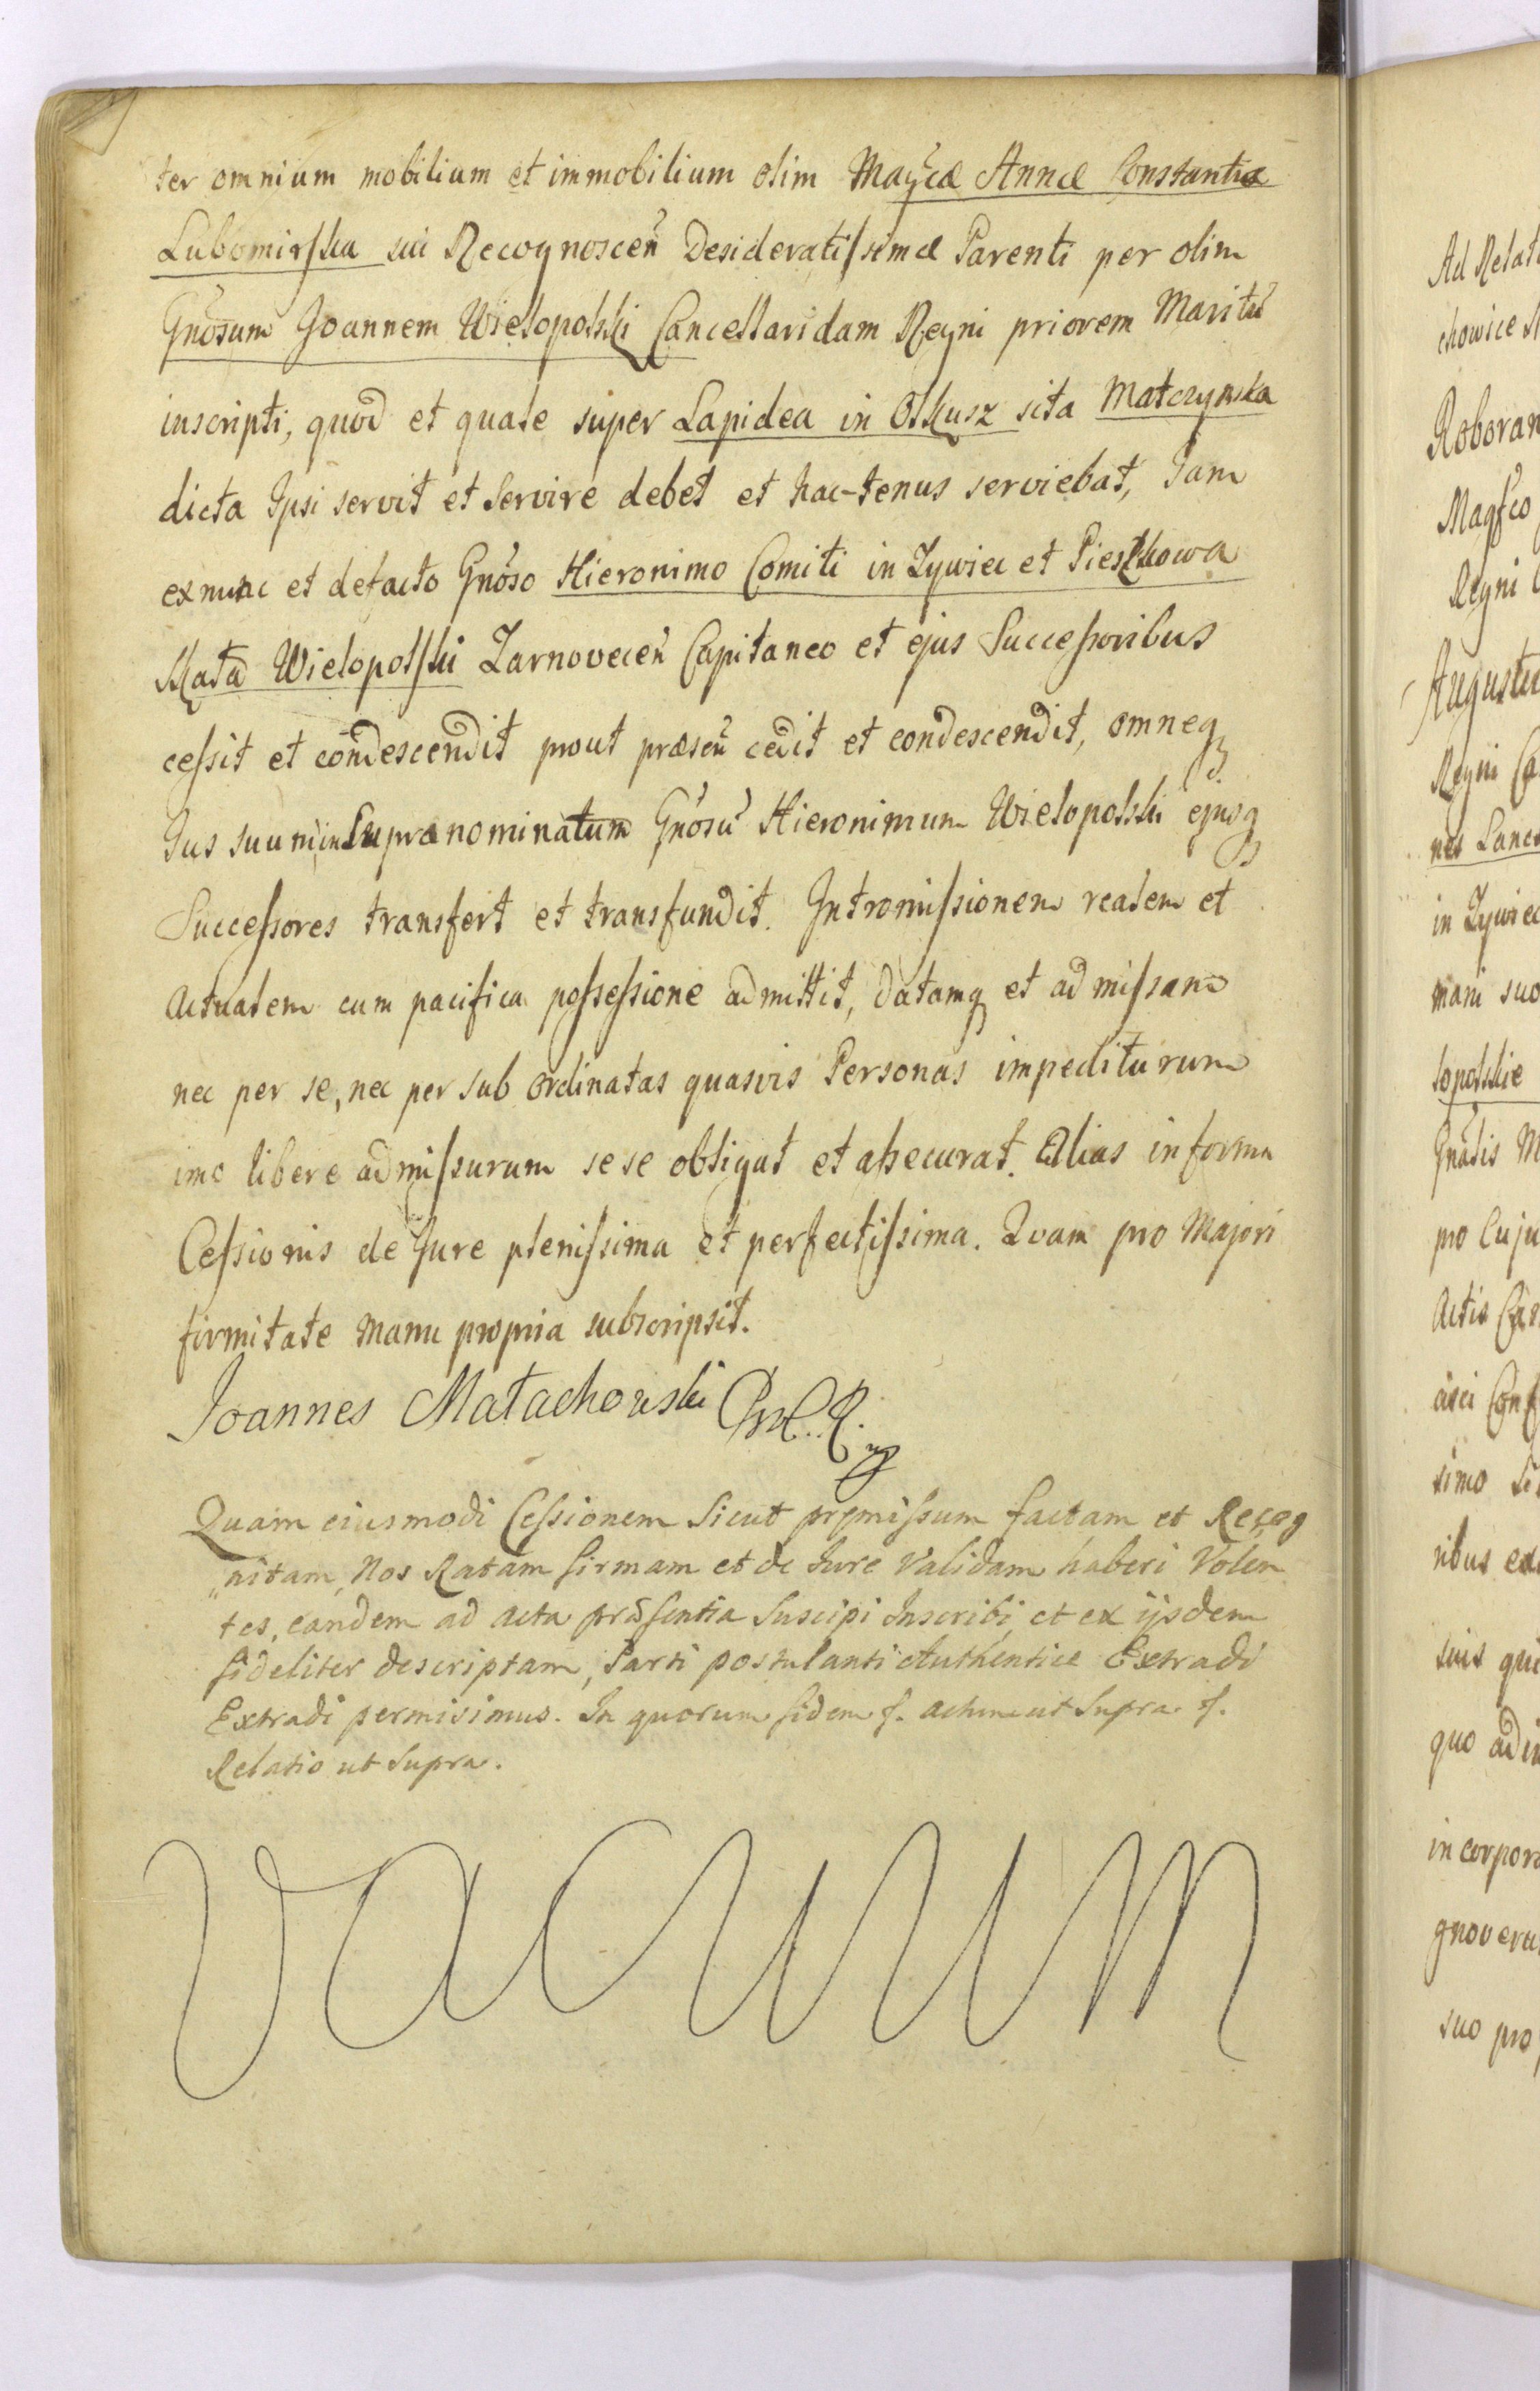 ter omnium mobilium et immobilium olim Magc̃æ Annæ Constantiæ
Lubomirska sui Recognosceñ Desideratissimæ Parenti per olim
Gñosum Joannem Wielopolski Cancellaridam Regni priorem Maritũ
inscripti, quod et quale super Lapidea in Olkusz sita Małczynska
dicta Ipsi servit et Servire debet et hac-tenus serviebat, Jam
exnunc et defacto Gñoso Hieronimo Comiti in Zywiec et Pieskowa
Skała Wielopolski Zarnoveceñ Capitaneo et ejus Successoribus
cessit et condescendit prout præseñ cedit et condescendit, omneq3
Jus suum in Supranominatum Gñosũ Hieronimum Wielopolski ejusq3
Successores transfert et transfundit. Intromissionem realem et
Actualem cum pacifica possessione admittit, datamq3 et admissam
nec per se, nec per sub ordinatas quasvis Personas impediturum
imo libere admissurum sese obligat et assecurat. Alias in forma
Cessionis de Jure plenissima et perfectissima. Quam pro Majori
firmitate manu propria subscripsit.
Joannes Małachowski
Quam eiusmodi Cessionem Sicut pręmissum factam et Recog
„nitam, Nos Ratam firmam et de Jure Validam haberi Volen
tes, eandem ad acta præsentia Suscipi Inscribi, et ex ijsdem
fideliter descriptam, Parti postulanti Authentice Extradi
Extradi permisimus. In quorum fidem f. actum ut Supra f.
Relatio ut Supra.
Vacuum
Ad Relat
chowice
Roboran
Magfco
Regni
Augustu
Regni
nes Lanc
in Zywiec
mani suo
lopolskie
Gnatis M
pro Cuju
Actis
simo
ribus
suis
quo
in corpora
gnoveru
suo pro